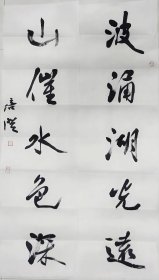 波涌湖光远
山催水色深